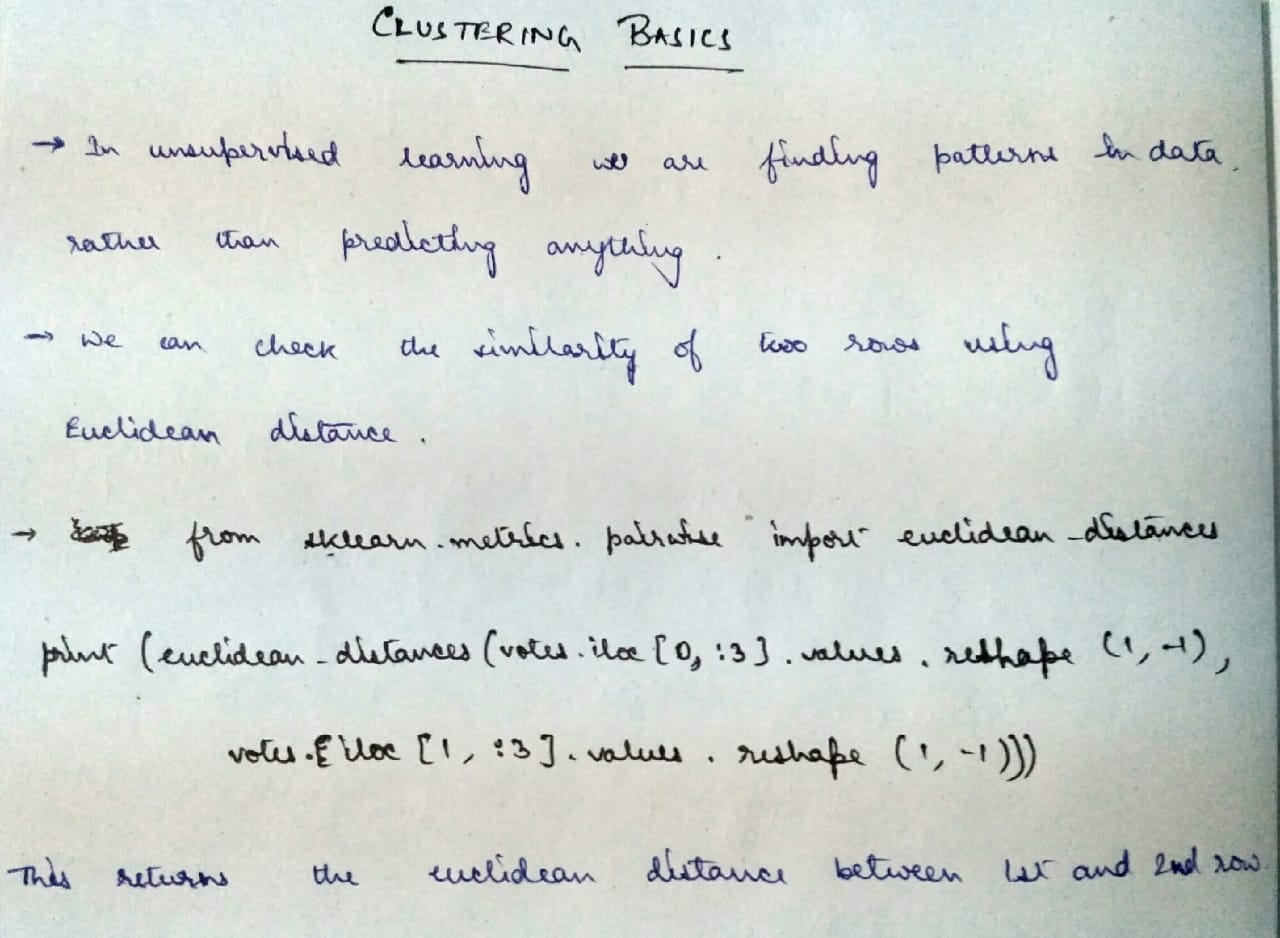 CLUSTERING BASICS
→ In unsupervised learning we are finding patterns in data
rather than predicting anything .
→ We can check the similarity of two rows using
Euclidean distance .
→ from sklearn.metrics.pairwise import euclidean_distances
print (euclidean_distances (votes.iloc [0, :3].values.reshape (1, -1),
votes.iloc [1, :3].values.reshape (1, -1)))
This returns the euclidean distance between 1st and 2nd row